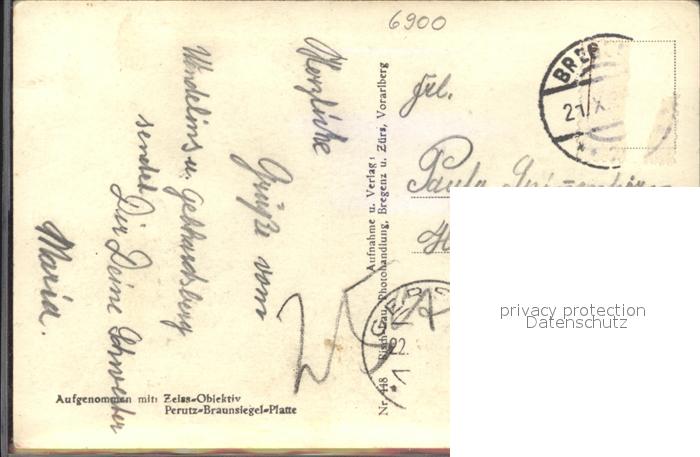 6900
Herzliche
Grüße vom
Wendelins u. Gebhardsberg
sendet
Dir Deine Schwester
Maria.
Aufgenommen mit: Zeiss-Objektiv
Perutz-Braunsiegel-Platte
Aufnahme u. Verlag:
Photohandlung, Bregenz u. Zürs, Vorarlberg
Nr. 148
Frl.
Paula
BREG
21. X.
22.
privacy protection
Datenschutz